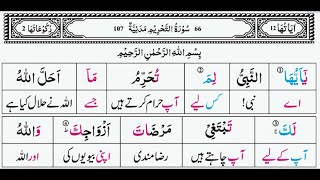 اٰیَاتُهَا 12 66 سُوْرَةُ التَّحْرِيْمِ مَدَنِيَّةٌ 107 رُكُوْعَاتُهَا 2
بِسْمِ اللّٰهِ الرَّحْمٰنِ الرَّحِيْمِ
يٰۤاَيُّهَا النَّبِيُّ لِمَ تُحَرِّمُ مَاۤ اَحَلَّ اللّٰهُ
اے نبی! کس لیے آپ حرام کرتے ہیں جسے اللہ نے حلال کیا ہے
لَكَ تَبْتَغِيْ مَرْضَاتَ اَزْوَاجِكَ وَاللّٰهُ
آپ کے لیے آپ چاہتے ہیں رضا مندی اپنی بیویوں کی اور اللہ